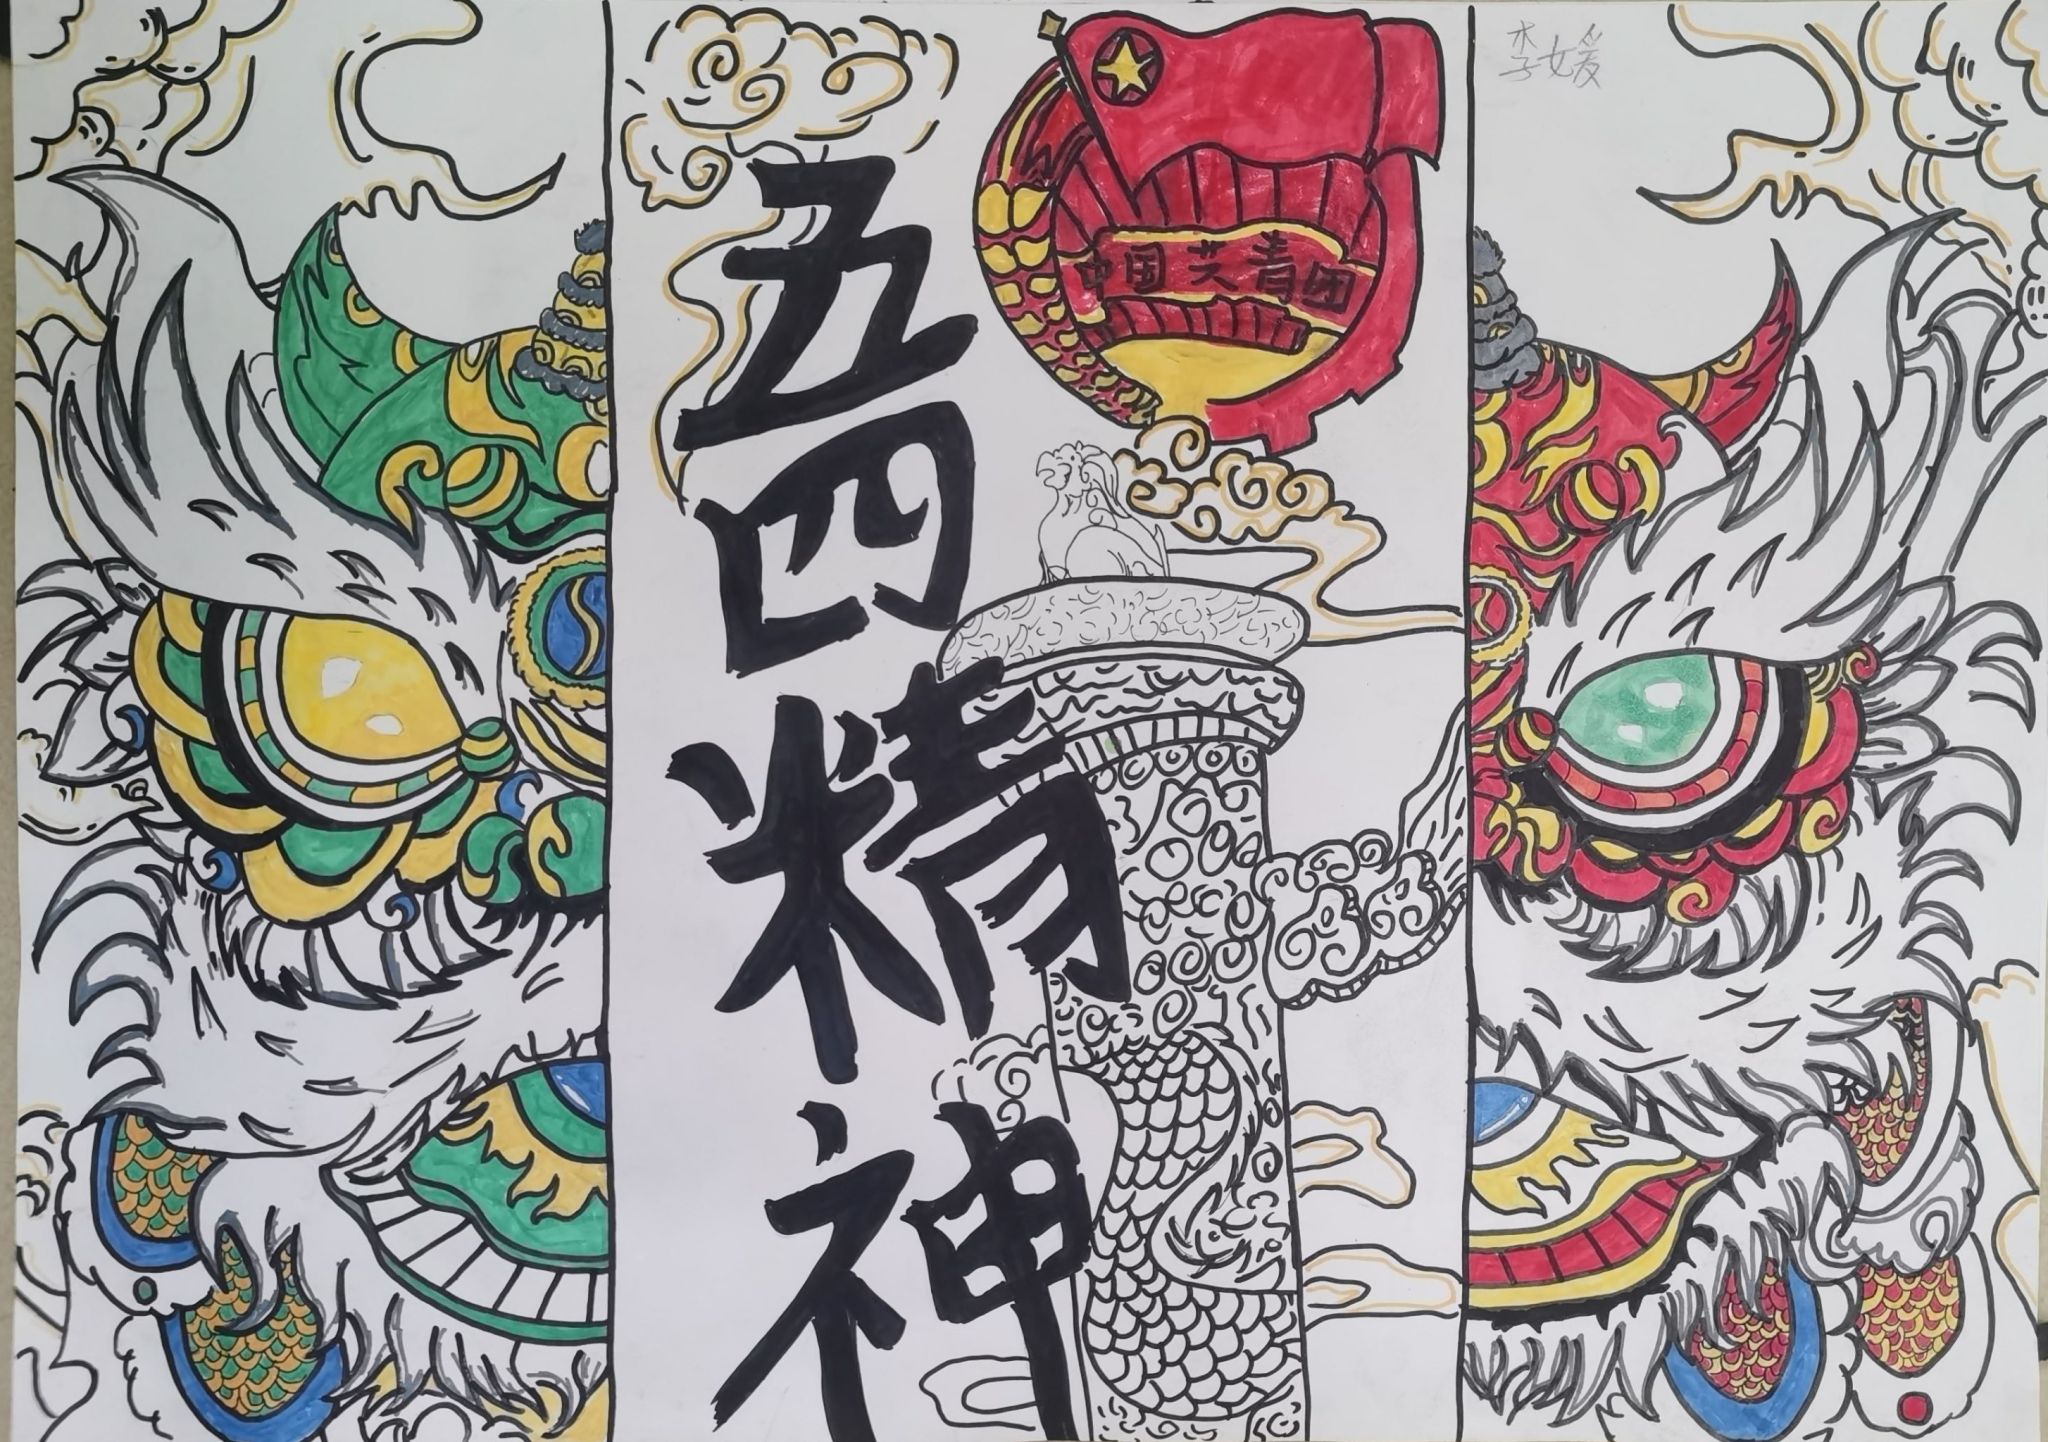 五四精神
中国共青团
李媛